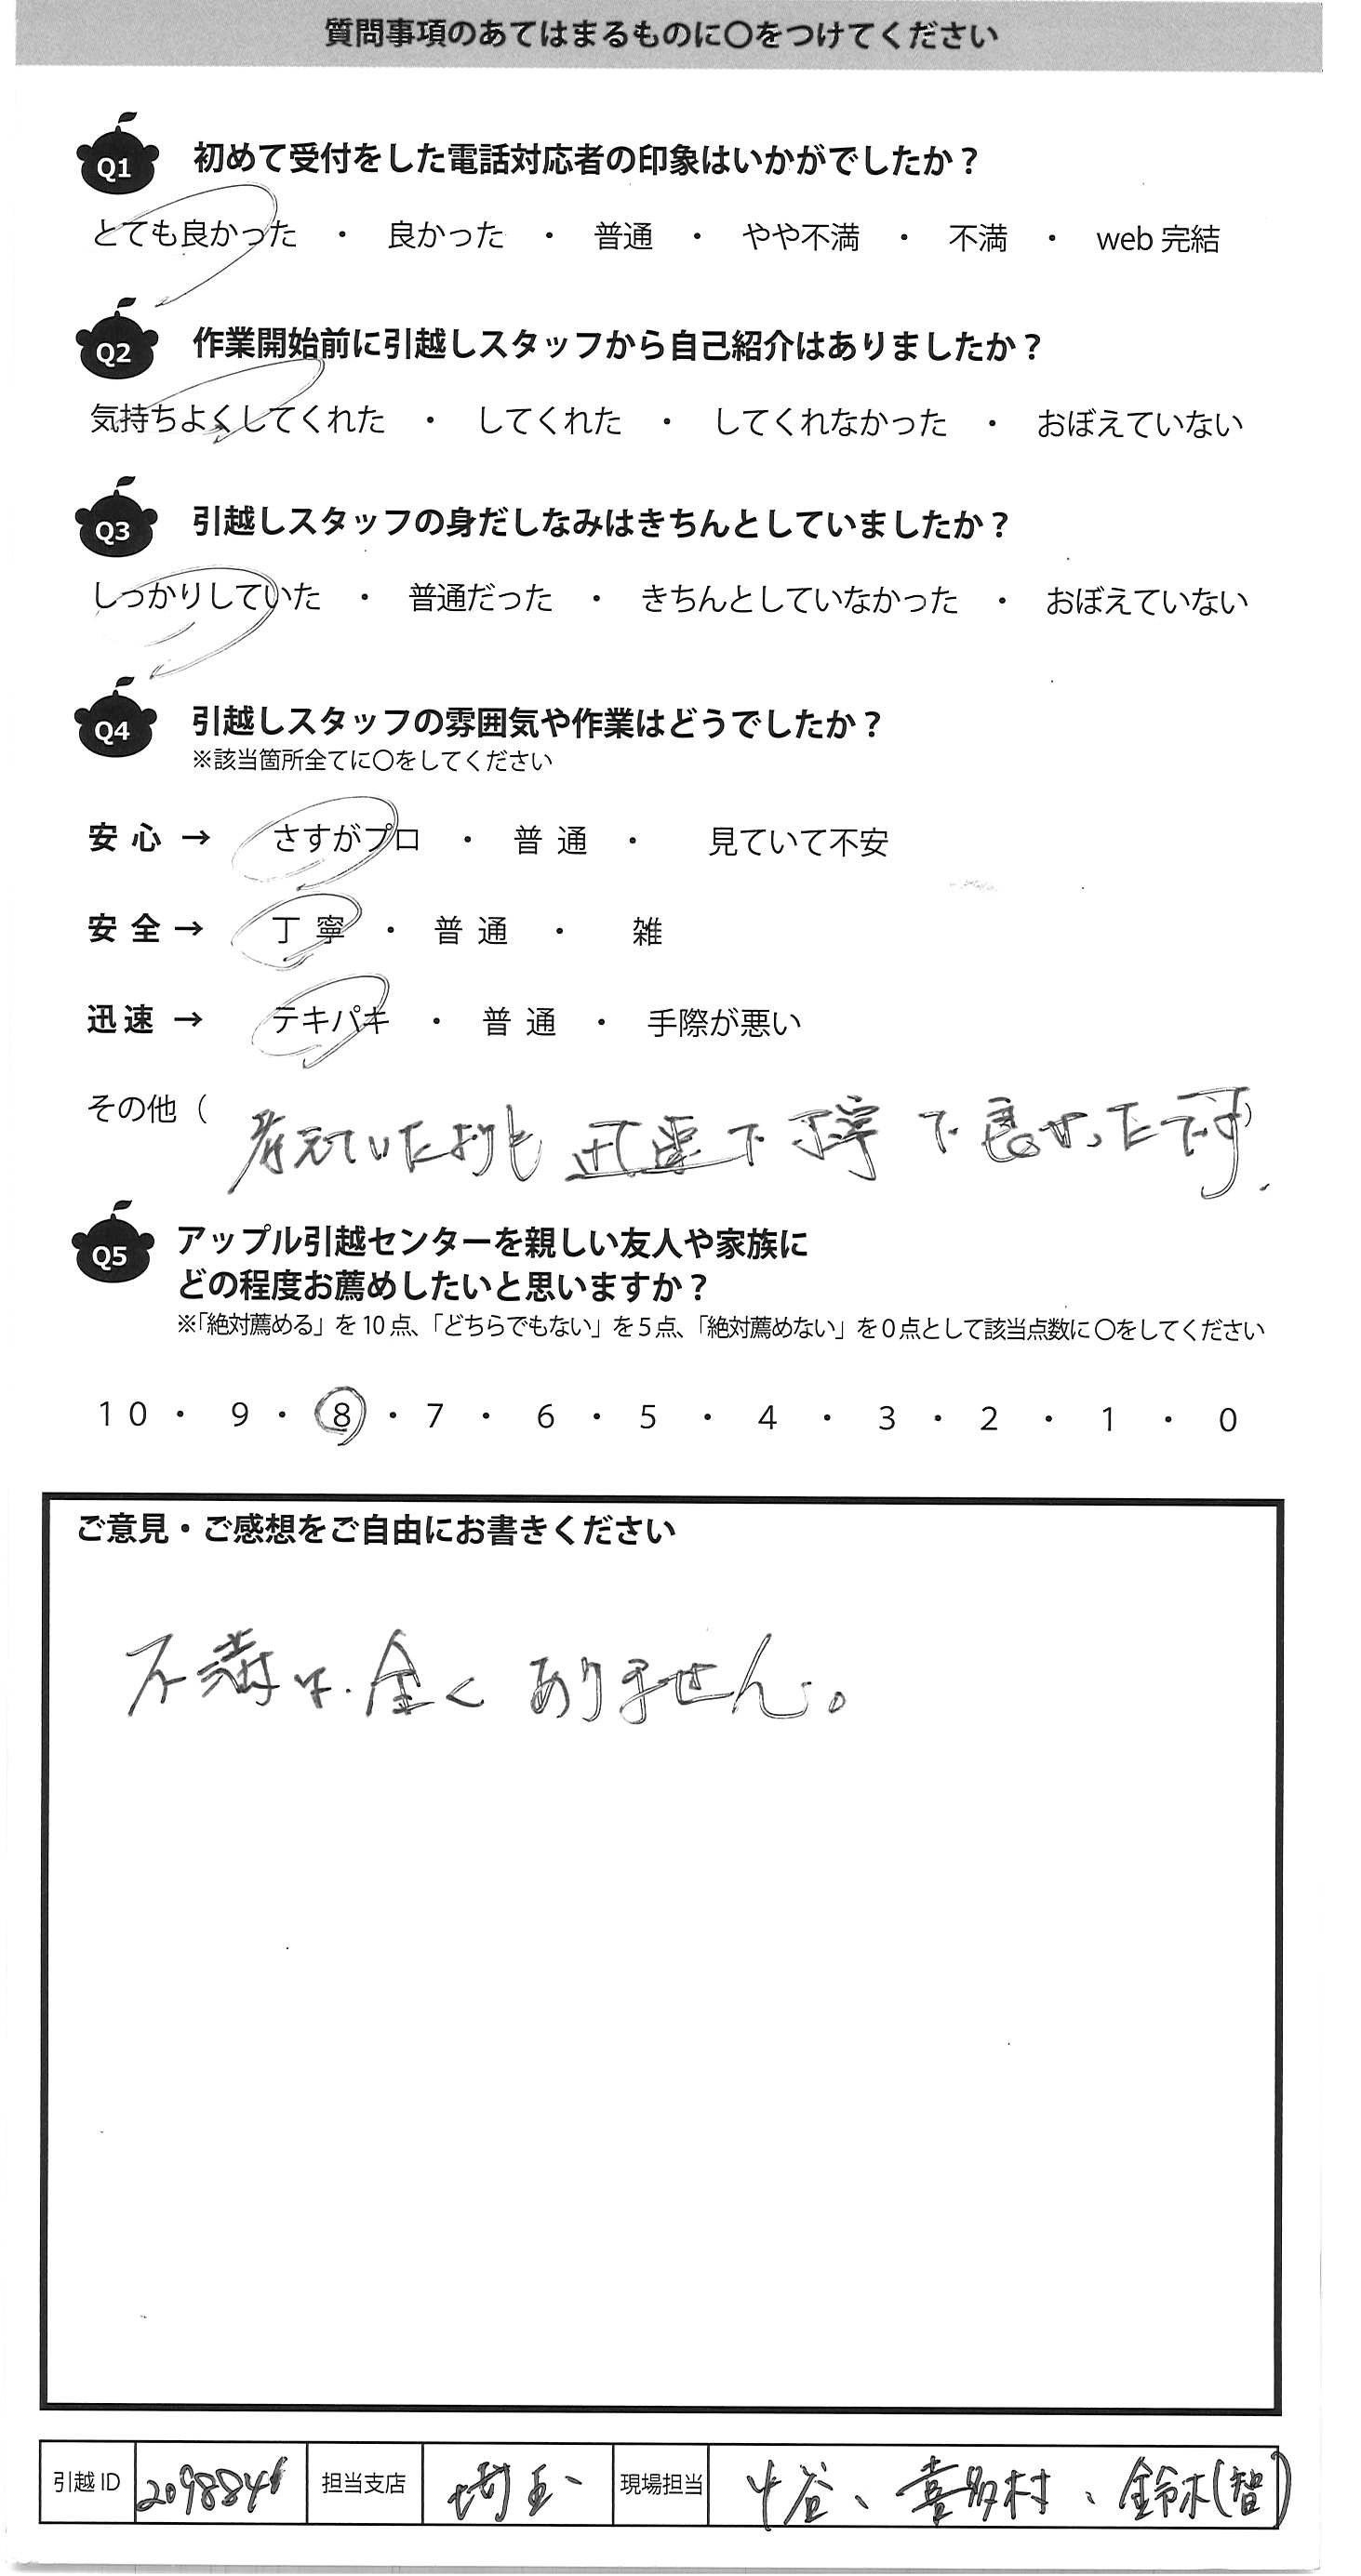 質問事項のあてはまるものに〇をつけてください
Q1 初めて受付をした電話対応者の印象はいかがでしたか？
とても良かった ・ 良かった ・ 普通 ・ やや不満 ・ 不満 ・ web 完結
Q2 作業開始前に引越しスタッフから自己紹介はありましたか？
気持ちよくしてくれた ・ してくれた ・ してくれなかった ・ おぼえていない
Q3 引越しスタッフの身だしなみはきちんとしていましたか？
しっかりしていた ・ 普通だった ・ きちんとしていなかった ・ おぼえていない
Q4 引越しスタッフの雰囲気や作業はどうでしたか？
※該当箇所全てに〇をしてください
安心 → さすがプロ ・ 普通 ・ 見ていて不安
安全 → 丁寧 ・ 普通 ・ 雑
迅速 → テキパキ ・ 普通 ・ 手際が悪い
その他（ 考えていたよりも 迅速で 丁寧で 良かったです）.
Q5 アップル引越センターを親しい友人や家族に
どの程度お薦めしたいと思いますか？
※「絶対薦める」を 10 点、「どちらでもない」を 5 点、「絶対薦めない」を 0 点として該当点数に 〇をしてください
10 ・ 9 ・ 8 ・ 7 ・ 6 ・ 5 ・ 4 ・ 3 ・ 2 ・ 1 ・ 0
ご意見・ご感想をご自由にお書きください
不満は全くありません。
引越 ID 担当支店 埼玉 現場担当 喜多村、鈴木(智)